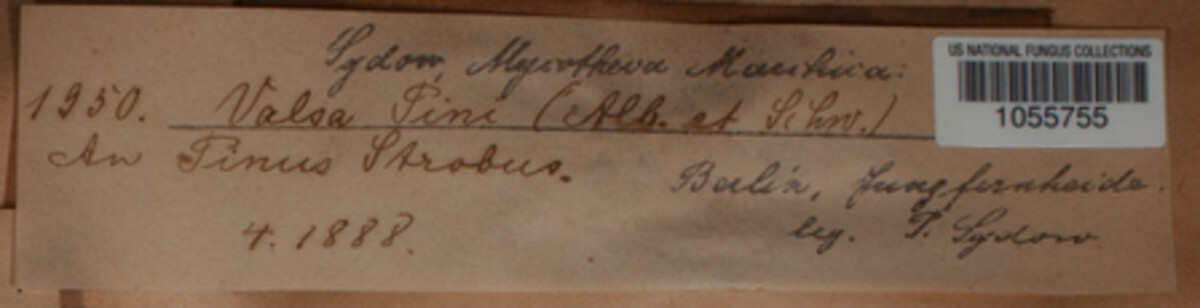 Sydow, Mycotheca Marchica:
1950. Valsa Pini (Alb. et Schw.)
An Pinus Strobus.
Berlin, Jungfernheide.
4. 1888.
leg. P. Sydow
US NATIONAL FUNGUS COLLECTIONS
1055755